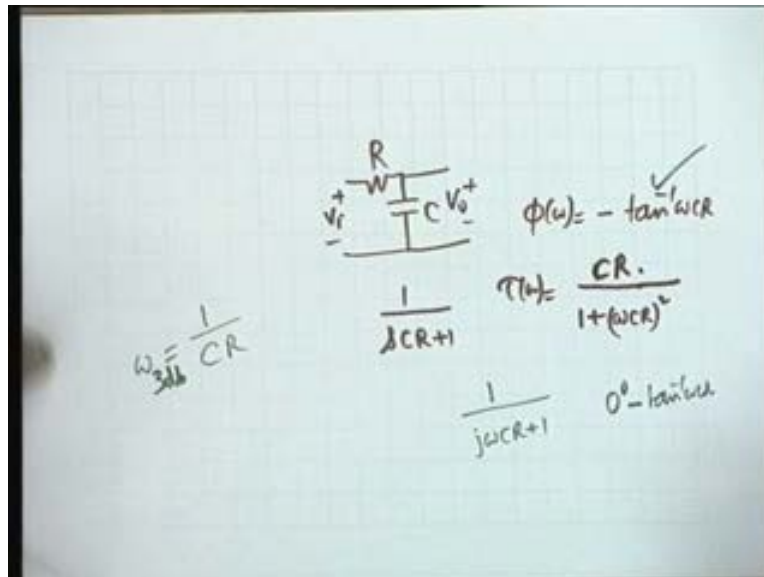 R
Vi + -
C Vo + -
φ(ω) = - tan⁻¹ωCR
1 / (sCR+1)
τ(ω) = CR. / (1+(ωCR)²)
ω3db = 1 / CR
1 / (jωCR+1)
0° - tan⁻¹ωCR